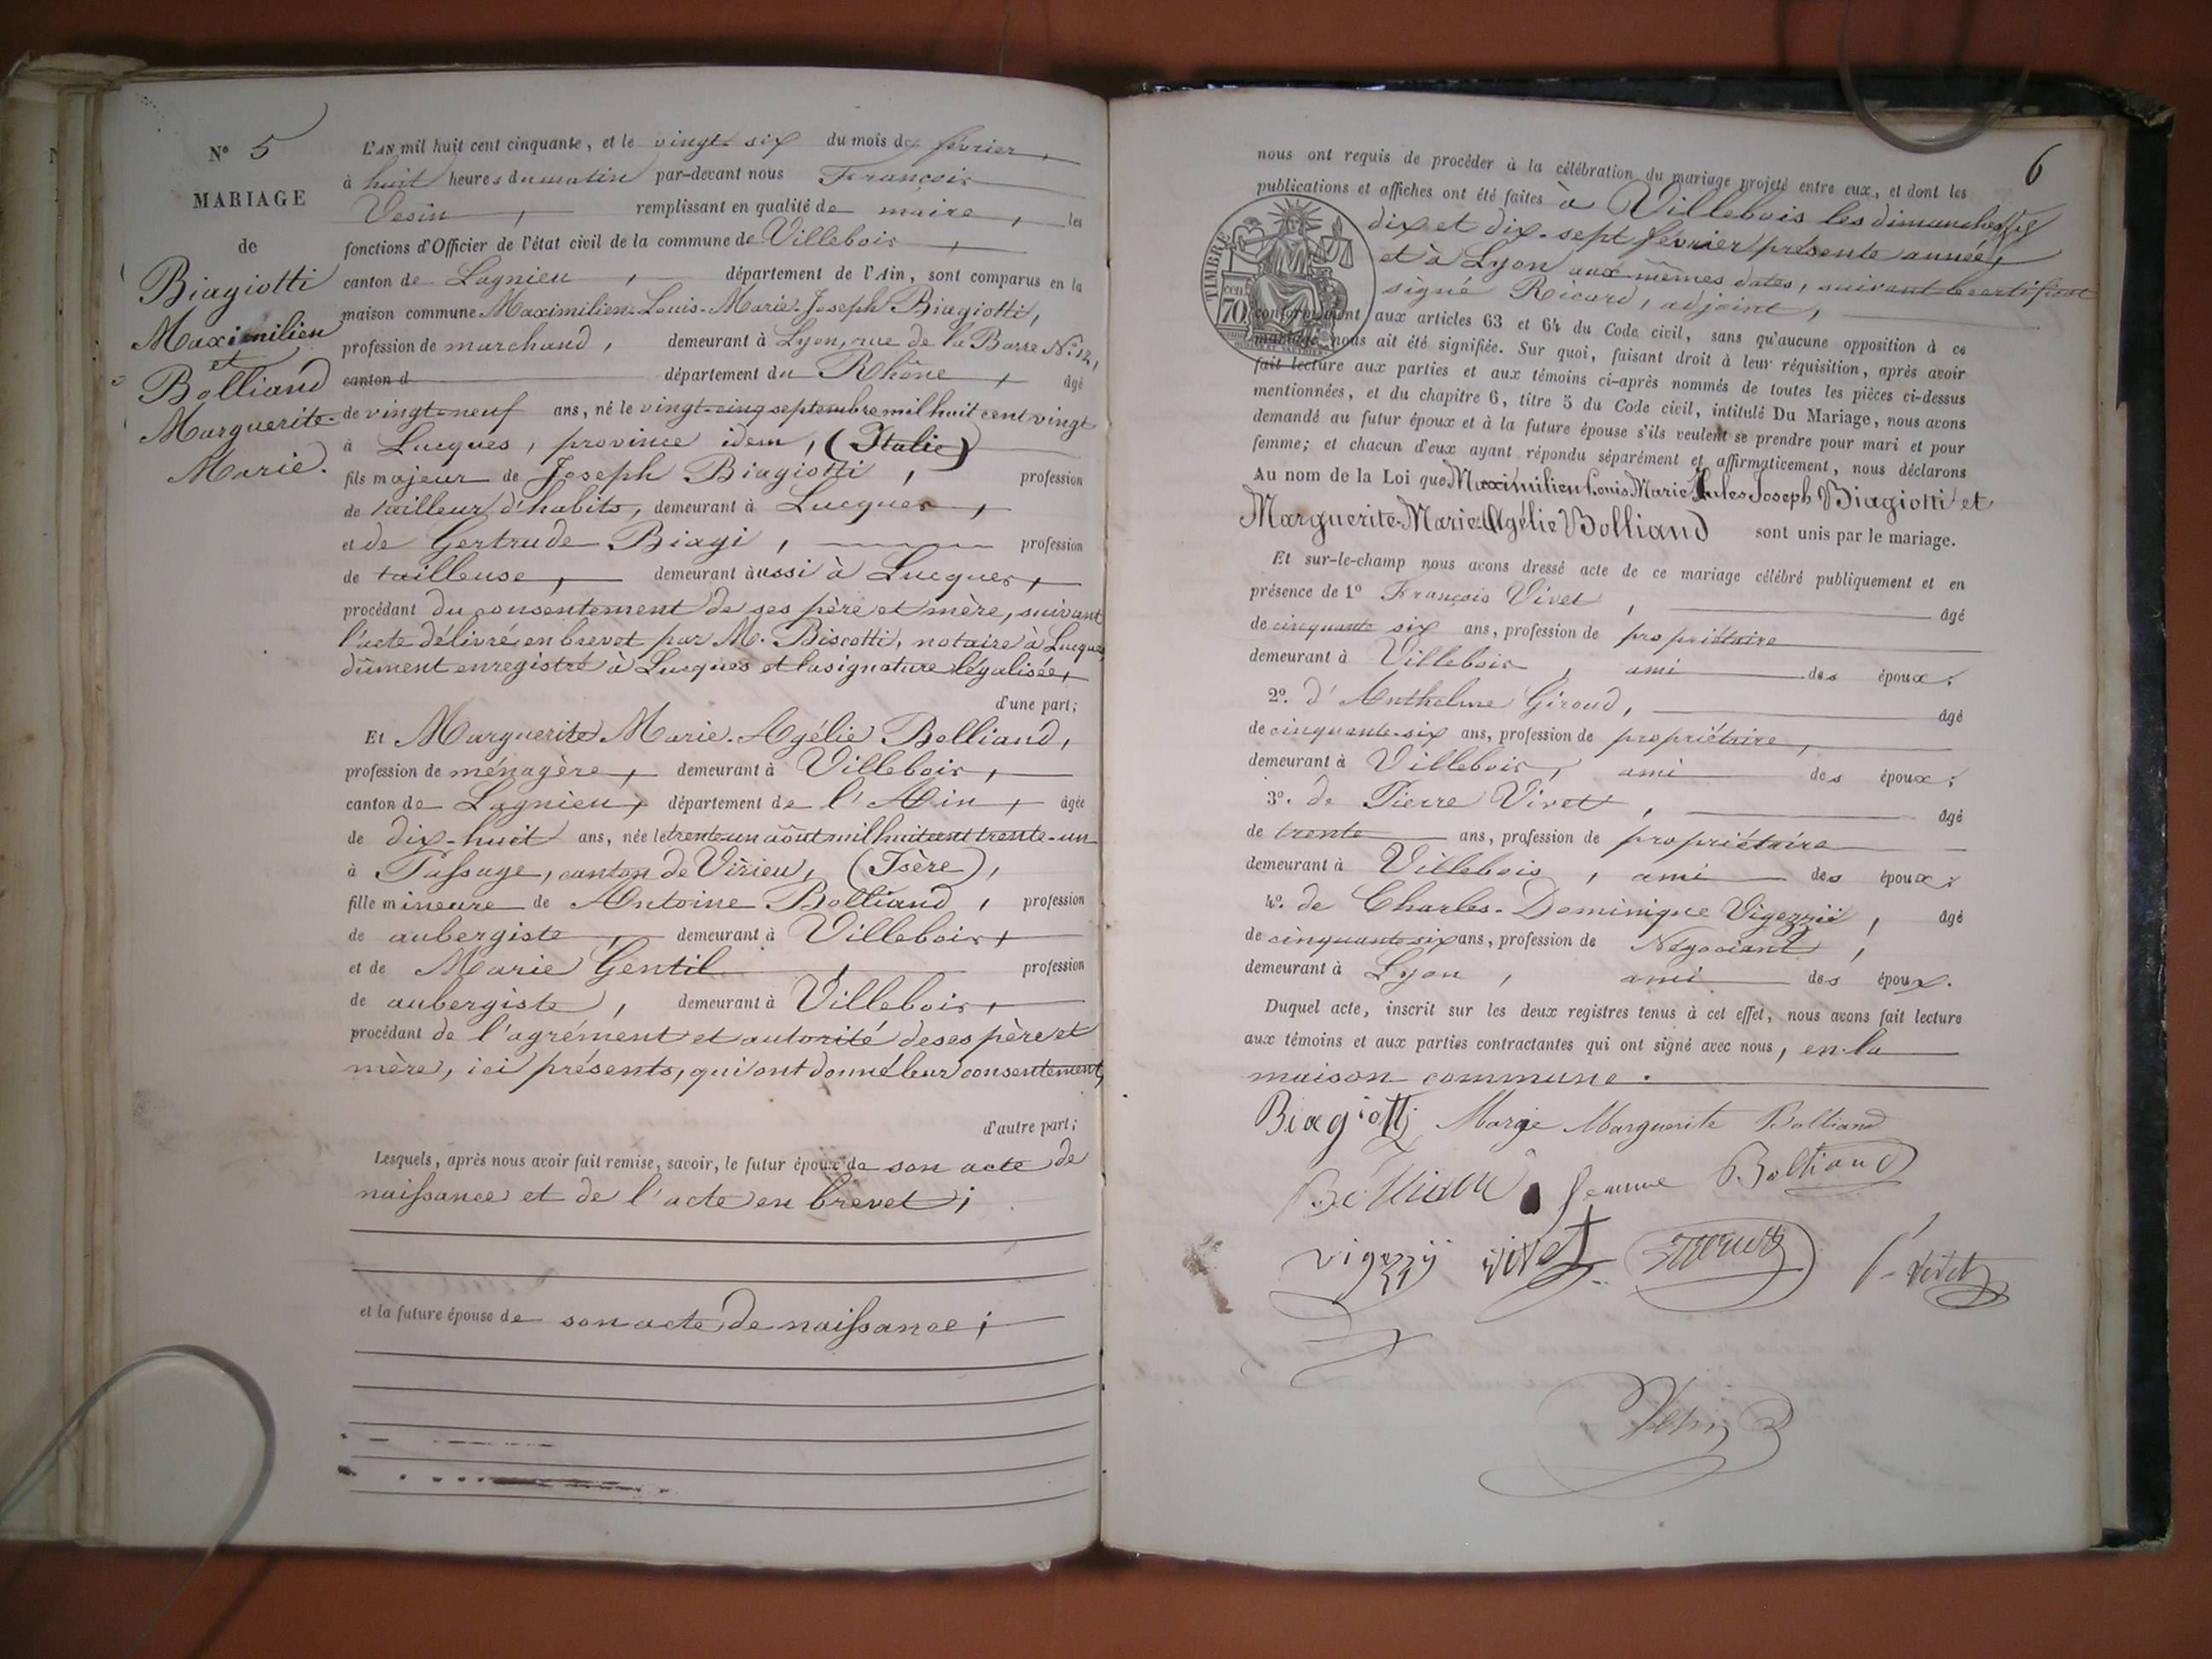 N° 5
MARIAGE
de
Biagiotti
Maximilien
et
Bolliand
Marguerite-
Marie.
L'AN mil huit cent cinquante, et le vingt six du mois de février,
à huit heures du matin par-devant nous François
Vesin, remplissant en qualité de maire, les
fonctions d'Officier de l'état civil de la commune de Villebois,
canton de Lagnieu, département de l'Ain, sont comparus en la
maison commune Maximilien-Louis-Marie-Joseph Biagiotti,
profession de marchand, demeurant à Lyon, rue de la Barre N° 12,
canton d département du Rhône, âgé
de vingt-neuf ans, né le vingt-cinq septembre mil huit cent vingt
à Lucques, province idem, (Italie)
fils majeur de Joseph Biagiotti, profession
de tailleur d'habits, demeurant à Lucques,
et de Gertrude Biagi, profession
de tailleuse, demeurant aussi à Lucques,
procédant du consentement de ses père et mère, suivant
l'acte délivré en brevet par M. Biscotti, notaire à Lucques,
dûment enregistré à Lucques et la signature légalisée,
d'une part;
Et Marguerite-Marie-Agélie Bolliand,
profession de ménagère, demeurant à Villebois,
canton de Lagnieu, département de l'Ain, âgée
de dix-huit ans, née le trente-un août mil huit cent trente-un
à Passage, canton de Virieu, (Isère),
fille mineure de Antoine Bolliand, profession
de aubergiste, demeurant à Villebois,
et de Marie Gentil, profession
de aubergiste, demeurant à Villebois,
procédant de l'agrément et autorité de ses père et
mère, ici présents, qui ont donné leur consentement,
d'autre part;
Lesquels, après nous avoir fait remise, savoir, le futur époux de son acte de
naissance et de l'acte en brevet;
et la future épouse de son acte de naissance;
6
nous ont requis de procéder à la célébration du mariage projeté entre eux, et dont les
publications et affiches ont été faites à Villebois les dimanches
dix et dix-sept février présente année,
et à Lyon aux mêmes dates, suivant le certificat
signé Ricard, adjoint,
TIMBRE
cen
70
conformément aux articles 63 et 64 du Code civil, sans qu'aucune opposition à ce
mariage nous ait été signifiée. Sur quoi, faisant droit à leur réquisition, après avoir
fait lecture aux parties et aux témoins ci-après nommés de toutes les pièces ci-dessus
mentionnées, et du chapitre 6, titre 5 du Code civil, intitulé Du Mariage, nous avons
demandé au futur époux et à la future épouse s'ils veulent se prendre pour mari et pour
femme; et chacun d'eux ayant répondu séparément et affirmativement, nous déclarons
Au nom de la Loi que Maximilien Louis Marie Jules Joseph Biagiotti et
Marguerite-Marie-Agélie Bolliand sont unis par le mariage.
Et sur-le-champ nous avons dressé acte de ce mariage célébré publiquement et en
présence de 1° François Vivet, âgé
de cinquante six ans, profession de propriétaire
demeurant à Villebois, ami des époux;
2°. d'Anthelme Giroud, âgé
de cinquante-six ans, profession de propriétaire,
demeurant à Villebois, ami des époux;
3°. de Pierre Vivet, âgé
de trente ans, profession de propriétaire
demeurant à Villebois, ami des époux;
4°. de Charles-Dominique Vigezzii, âgé
de cinquante-six ans, profession de Négociant,
demeurant à Lyon, ami des époux.
Duquel acte, inscrit sur les deux registres tenus à cet effet, nous avons fait lecture
aux témoins et aux parties contractantes qui ont signé avec nous, en la
maison commune.
Biagiotti Marie Marguerite Bolliand
Bolliand femme Bolliand
vigezzij vivet P. Vivet
Vesin